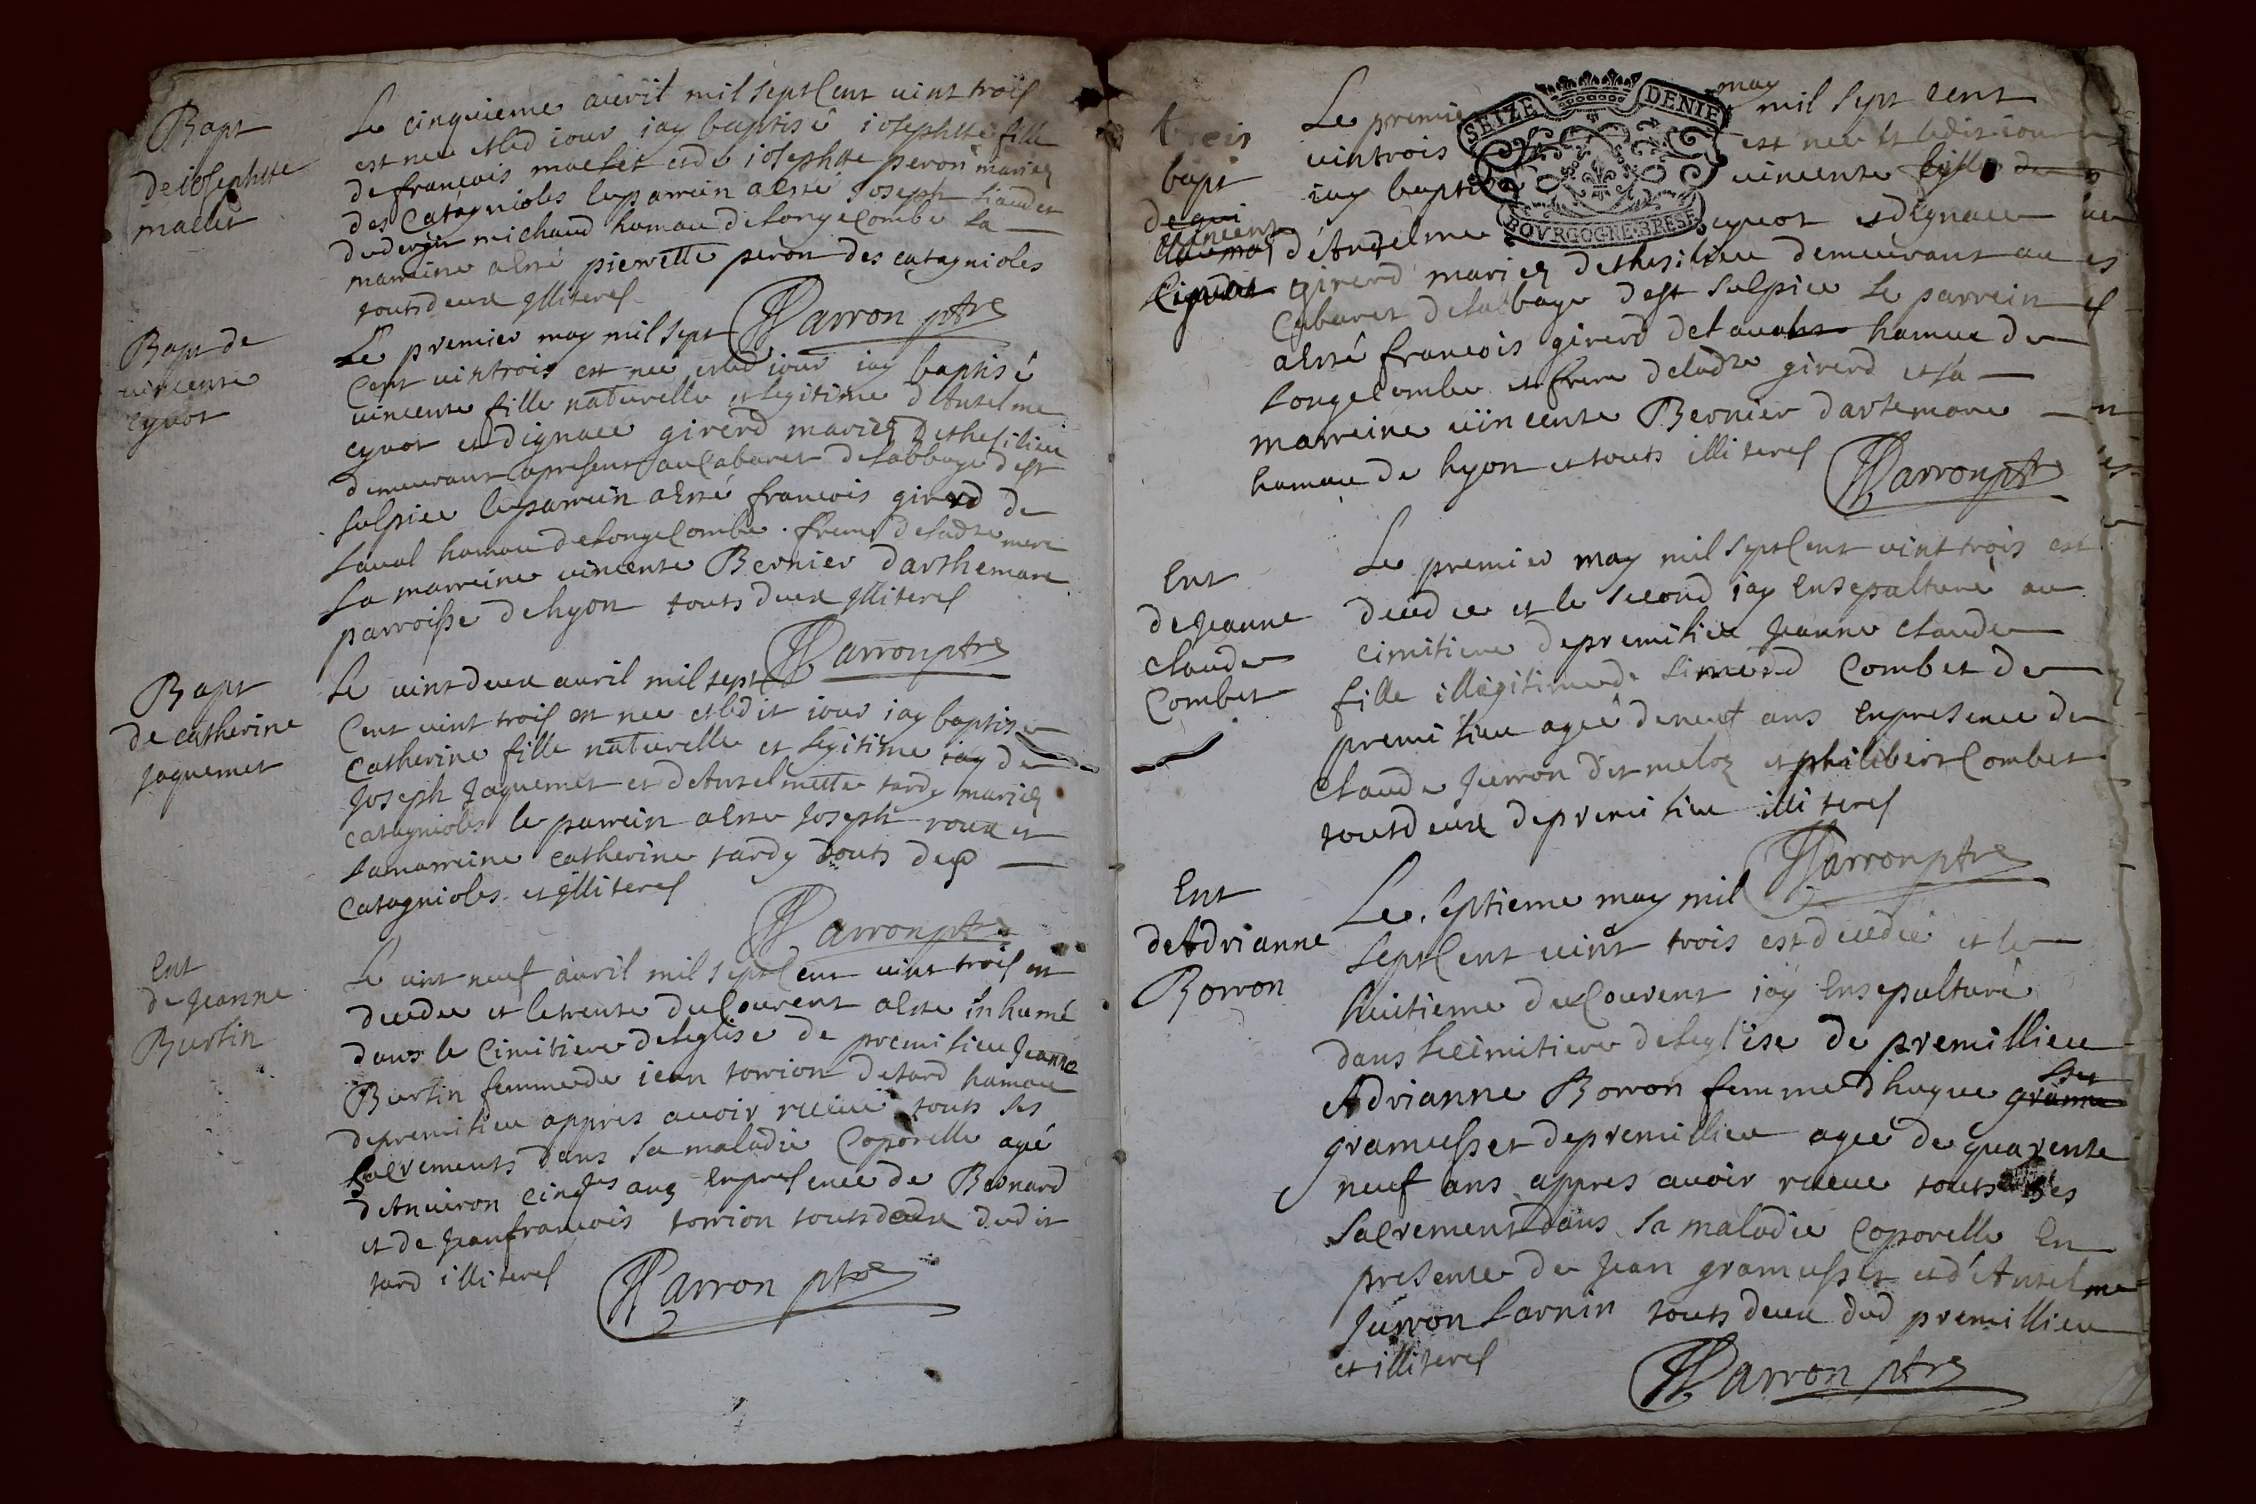 Bapt
de iosephtte
mallet
Le cinquieme auvril mil sept Cent vint trois
est nee et led iour iay baptisé iosephtte fille
de françois mallet et de iosephtte peron mariez
des Catagnioles le parrein a esté Joseph
michaud hamau de Longecombe La
marreine a esté pierrette peron des catagnioles
touts deux Illiteres
Parron ptre
Bapt de
vincente
cyvot
Le premier may mil sept
Cent vintrois est nee et led iour iay baptisé
vincente fille naturelle et legitime d'Antelme
cyvot et d'ignace girerd mariez de thesilieu
demeurant apresent au Cabaret de labbaye de st
sulpice le parrein a esté francois girerd de
Laval hamau de Longecombe . frere de ladte mere
La marreine vincente Bernier darthemare
parroisse de lyon touts deux Illiteres
Parron ptre
Bapt
de catherine
Jaquemet
Le vint deux auril mil sept
Cent vint trois est nee et ledit iour iay baptisé
Catherine fille naturelle et legitime iay de
Joseph Jaquemet et d'Antelmette tardy mariez
catagnioles le parrein a esté Joseph roux et
La marreine catherine tardy touts des
Catagnioles et Illiteres
Parron ptre
Ent
de Jeanne
Burtin
Le vint neuf auril mil sept Cent vint trois est
decedee et le trente du Courent a esté inhumé
dans le Cimitiere de leglise de premilieu Jeanne
Burtin femme de iean torrion de tard hamau
de premilieu appres avoir receue touts ses
sacrements dans sa maladie Coporelle agé
d'Anviron cinqts ans En presence de Bernard
et de Jean francois torrion touts deux dudit
tard illiteres
Parron ptre
SEIZE DENIE
BOVRGOGNE BRESE
bapt
de
vincent
Le premie may mil sept cent
vintrois est nee et ledit iour
iay baptisé vincente fille de
d'Antelme cyvot et d'Ignace
girerd mariez de thesilieu demeurant au
Cabaret de labbaye de st sulpice Le parrein
a esté francois girerd de laval hamau de
Longecombe et frere de ladte girerd et la
marreine viincente Bernier dartemare
hamau de lyon et touts illiteres
Parron ptre
Ent
de Jeanne
claude
Combet
Le premier may mil sept Cent vint trois est
decedee et le second iay Ensepulturé au
cimitiere de premilieu Jeanne claude
fille illegitime de Combet de
premilieu agee de neuf ans En presence de
Claude Jurron dit meloz et philibert Combet
touts deux de premilieu illiteres
Parron ptre
Ent
de Adrianne
Borron
Le septieme may mil
sept Cent vint trois est decedee et le
huitieme du Courent iay Ensepulturé
dans le cimitiere de leglise de premillieu
Adrianne Borron femme d'hugue
gramusset de premillieu agee de quarente
neuf ans appres avoir receue touts ses
sacrements dans sa maladie Coporelle En
presence de Jean gramusset et d'Antelme
Jurron Larnin touts deux dud premillieu
et illiteres
Parron ptre